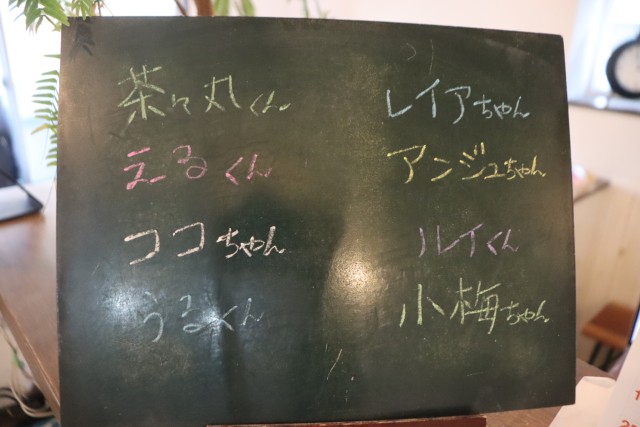 茶々丸くん
えるくん
ココちゃん
うるくん
レイアちゃん
アンジュちゃん
ルイくん
小梅ちゃん